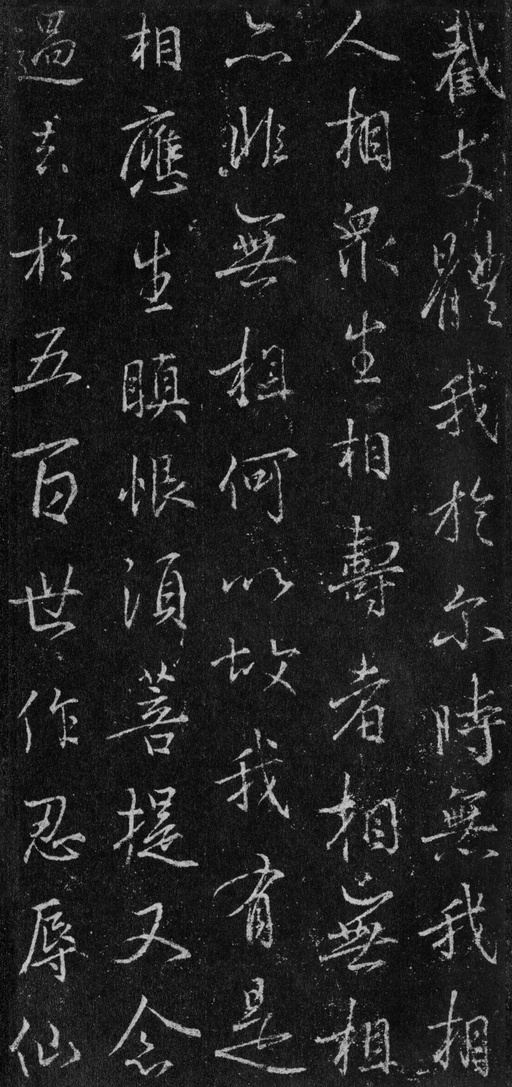 截支體我於尔時無我相
人相衆生相壽者相無相
亦非無相何以故我有是
相應生瞋恨須菩提又念
過去於五百世作忍辱仙